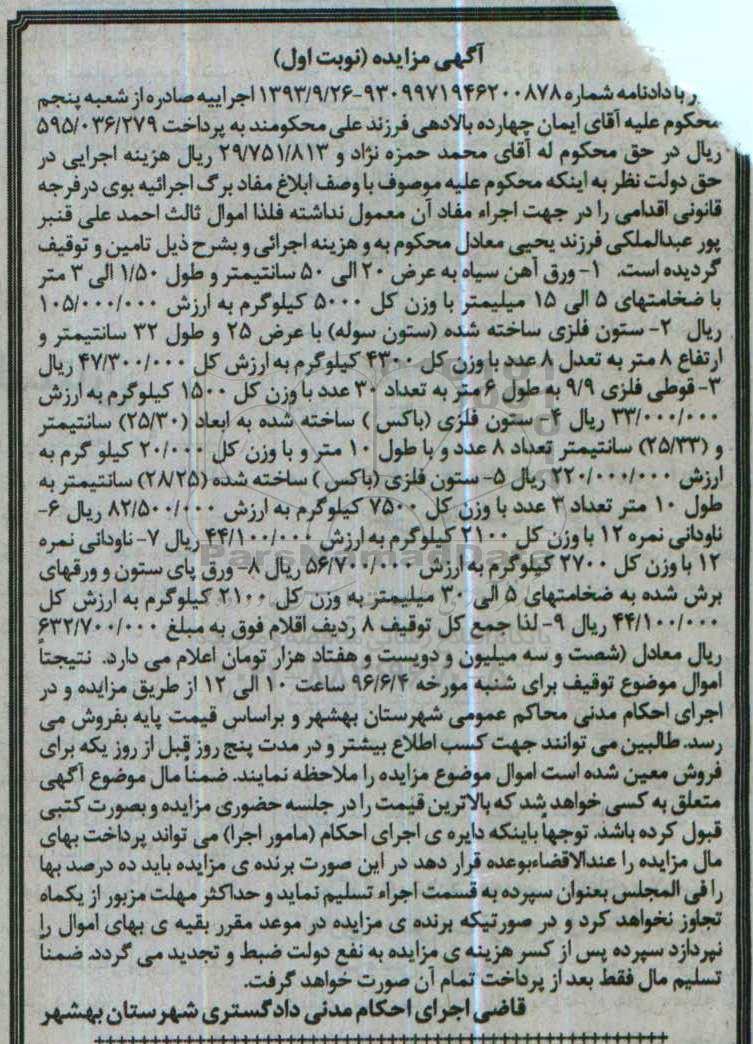 آگهی مزایده (نوبت اول)
با دادنامه شماره ۹۳۰۹۹۷۱۹۴۶۲۰۰۸۷۸-۱۳۹۳/۹/۲۶ اجراییه صادره از شعبه پنجم
محکوم علیه آقای ایمان چهارده بالادهی فرزند علی محکومند به پرداخت ۵۹۵/۰۳۶/۲۷۹
ریال در حق محکوم له آقای محمد حمزه نژاد و ۲۹/۷۵۱/۸۱۳ ریال هزینه اجرایی در
حق دولت نظر به اینکه محکوم علیه موصوف با وصف ابلاغ مفاد برگ اجرائیه بوی در فرجه
قانونی اقدامی را در جهت اجراء مفاد آن معمول نداشته فلذا اموال ثالث احمد علی قنبر
پور عبدالملکی فرزند یحیی معادل محکوم به و هزینه اجرائی و بشرح ذیل تامین و توقیف
گردیده است. ۱- ورق آهن سیاه به عرض ۲۰ الی ۵۰ سانتیمتر و طول ۱/۵۰ الی ۳ متر
با ضخامتهای ۵ الی ۱۵ میلیمتر با وزن کل ۵۰۰۰ کیلوگرم به ارزش ۱۰۵/۰۰۰/۰۰۰
ریال ۲- ستون فلزی ساخته شده (ستون سوله) با عرض ۲۵ و طول ۳۲ سانتیمتر و
ارتفاع ۸ متر به تعدل ۸ عدد با وزن کل ۴۳۰۰ کیلوگرم به ارزش کل ۴۷/۳۰۰/۰۰۰ ریال
۳- قوطی فلزی ۹/۹ به طول ۶ متر به تعداد ۳۰ عدد با وزن کل ۱۵۰۰ کیلوگرم به ارزش
۳۳/۰۰۰/۰۰۰ ریال ۴- ستون فلزی (باکس) ساخته شده به ابعاد (۲۵/۳۰) سانتیمتر
و (۲۵/۳۳) سانتیمتر تعداد ۸ عدد و با طول ۱۰ متر و با وزن کل ۲۰/۰۰۰ کیلو گرم به
ارزش ۲۲۰/۰۰۰/۰۰۰ ریال ۵- ستون فلزی (باکس) ساخته شده (۲۸/۲۵) سانتیمتر به
طول ۱۰ متر تعداد ۳ عدد با وزن کل ۷۵۰۰ کیلوگرم به ارزش ۸۲/۵۰۰/۰۰۰ ریال ۶-
ناودانی نمره ۱۲ با وزن کل ۲۱۰۰ کیلوگرم به ارزش ۴۴/۱۰۰/۰۰۰ ریال ۷- ناودانی نمره
۱۲ با وزن کل ۲۷۰۰ کیلوگرم به ارزش ۵۶/۷۰۰/۰۰۰ ریال ۸- ورق پای ستون و ورقهای
برش شده به ضخامتهای ۵ الی ۳۰ میلیمتر به وزن کل ۲۱۰۰ کیلوگرم به ارزش کل
۴۴/۱۰۰/۰۰۰ ریال ۹- لذا جمع کل توقیف ۸ ردیف اقلام فوق به مبلغ ۶۳۲/۷۰۰/۰۰۰
ریال معادل (شصت و سه میلیون و دویست و هفتاد هزار تومان اعلام می دارد. نتیجتا
اموال موضوع توقیف برای شنبه مورخه ۹۶/۶/۴ ساعت ۱۰ الی ۱۲ از طریق مزایده و در
اجرای احکام مدنی محاکم عمومی شهرستان بهشهر و براساس قیمت پایه بفروش می
رسد. طالبین می توانند جهت کسب اطلاع بیشتر و در مدت پنج روز قبل از روز یکه برای
فروش معین شده است اموال موضوع مزایده را ملاحظه نمایند. ضمناً مال موضوع آگهی
متعلق به کسی خواهد شد که بالاترین قیمت را در جلسه حضوری مزایده و بصورت کتبی
قبول کرده باشد. توجهاً باینکه دایره ی اجرای احکام (مامور اجرا) می تواند پرداخت بهای
مال مزایده را عندالاقضاءبوعده قرار دهد در این صورت برنده ی مزایده باید ده درصد بها
را فی المجلس بعنوان سپرده به قسمت اجراء تسلیم نماید و حداکثر مهلت مزبور از یکماه
تجاوز نخواهد کرد و در صورتیکه برنده ی مزایده در موعد مقرر بقیه ی بهای اموال را
نپردازد سپرده پس از کسر هزینه ی مزایده به نفع دولت ضبط و تجدید می گردد. ضمناً
تسلیم مال فقط بعد از پرداخت تمام آن صورت خواهد گرفت.
قاضی اجرای احکام مدنی دادگستری شهرستان بهشهر
ParsNamadData